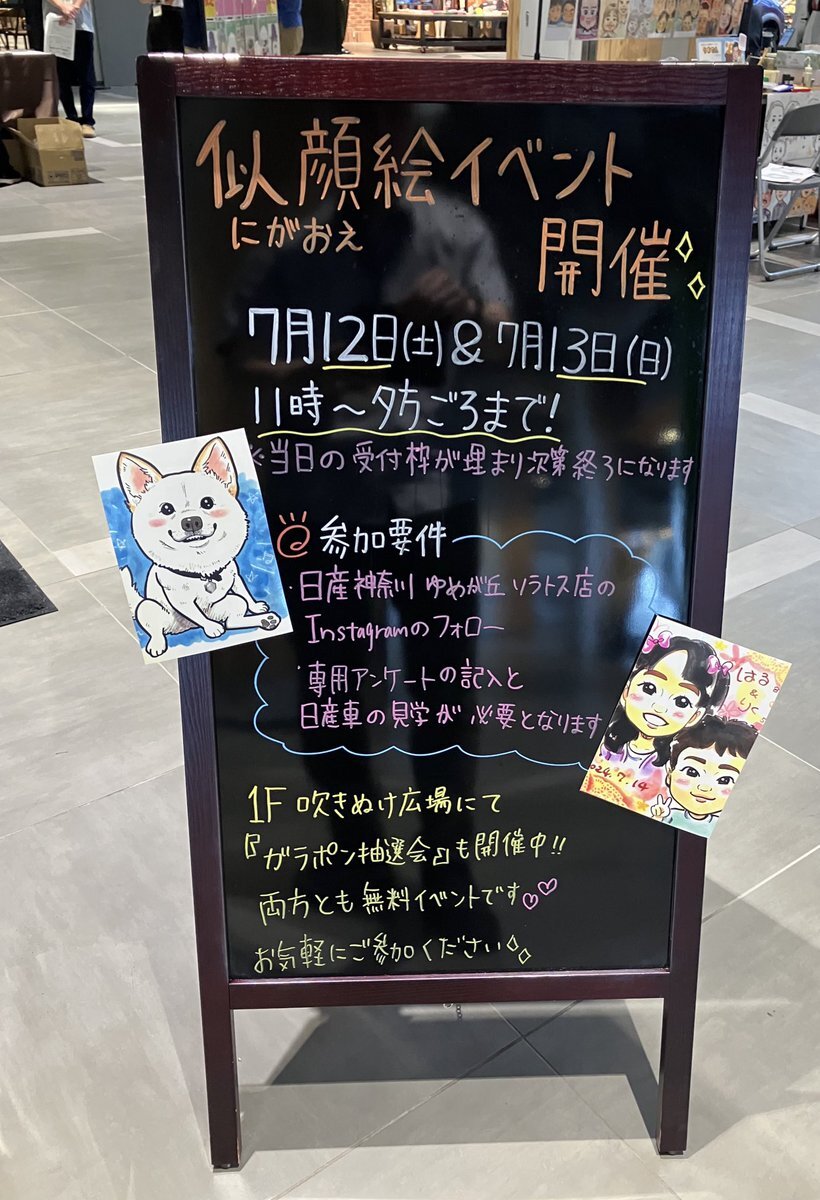 似顔絵イベント
にがおえ
開催
7月12日(土)&7月13日(日)
11時〜夕方ごろまで!
※当日の受付枠が埋まり次第終了になります
参加要件
・日産神奈川 ゆめが丘 ソラトス店の
Instagramのフォロー
・専用アンケートの記入と
日産車の見学が必要となります
はる
&
りく
2024.7.14
1F 吹きぬけ広場にて
『ガラポン抽選会』も開催中!!
両方とも無料イベントです
お気軽にご参加ください